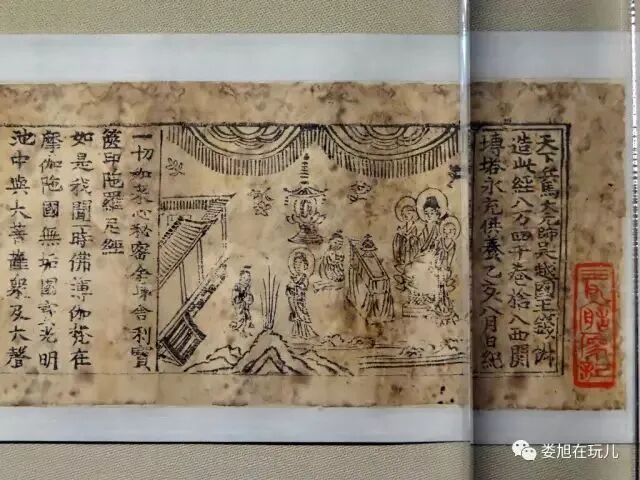 天下兵馬大元帥吳越國王錢俶
造此經八万四千卷捨入西關
塼塔永充供養乙亥八月日紀
一切如來心秘密全身舍利寶
篋印陁羅尼經
如是我聞一時佛薄伽梵在
摩伽陁國無垢園寶光明
池中與大菩薩衆及大聲
娄旭在玩儿